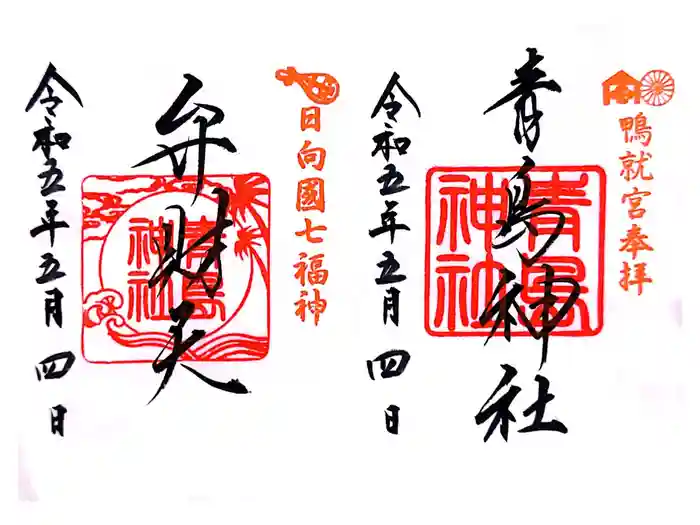 鴨就宮奉拝
青島神社
青島神社
令和五年五月四日
日向國七福神
弁財天
青島神社
令和五年五月四日